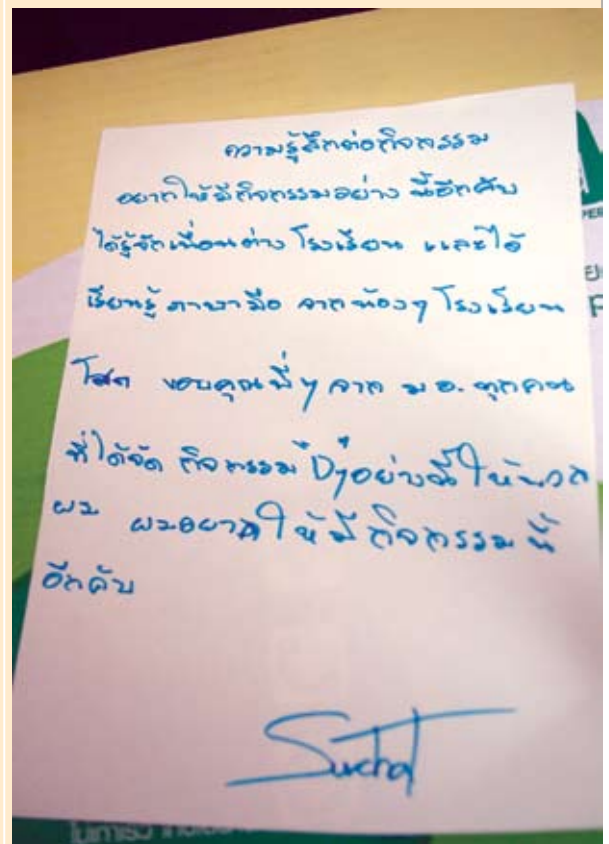 ความรู้สึกต่อกิจกรรม
อยากให้มีกิจกรรมอย่าง นี้อีกคับ
ได้รู้จักเพื่อนต่าง โรงเรียน และได้
เรียนรู้ ภาษา มือ จากน้องๆ โรงเรียน
โสต ขอบคุณพี่ๆ จาก ม.อ. ทุกคน
ที่ได้จัด กิจกรรม ดีๆอย่างนี้ ให้พวก
ผม ผมอยากให้มีกิจกรรมนี้
อีกคับ
Suchat